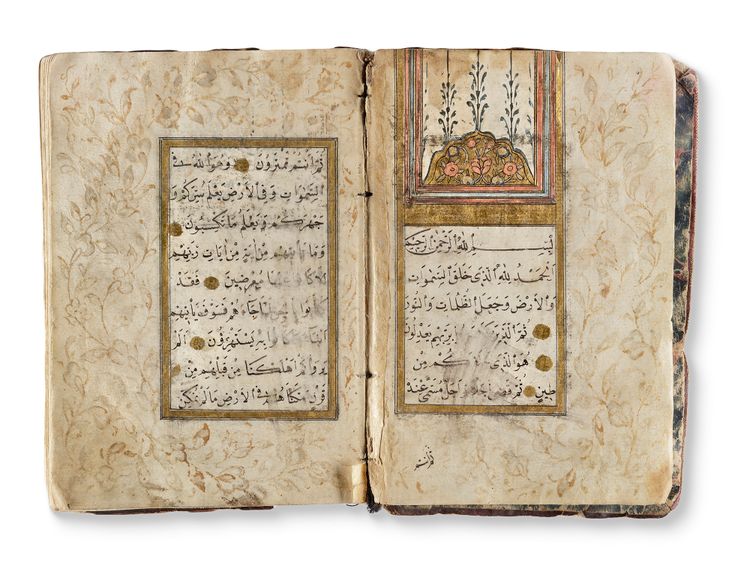 بِسْمِ اللهِ الرَّحْمٰنِ الرَّحِيمِ
اَلْحَمْدُ لِلّٰهِ الَّذِى خَلَقَ السَّمٰوَاتِ
وَالْاَرْضَ وَجَعَلَ الظُّلُمَاتِ وَالنُّورَ
ثُمَّ الَّذِينَ بِرَبِّهِمْ يَعْدِلُونَ
هُوَ الَّذِى مِنْ
طِينٍ ثُمَّ قَضٰى وَاَجَلٌ مُسَمًّى عِنْدَهُ
ثم انتم
ثُمَّ اَنْتُمْ تَمْتَرُونَ وَهُوَ اللهُ فِى
السَّمٰوَاتِ وَفِى الْاَرْضِ يَعْلَمُ سِرَّكُمْ وَ
جَهْرَكُمْ وَيَعْلَمُ مَا تَكْسِبُونَ
وَمَا تَأْتِيهِمْ مِنْ اٰيَةٍ مِنْ اٰيَاتِ رَبِّهِمْ
اِلَّا كَانُوا عَنْهَا مُعْرِضِينَ فَقَدْ
كَذَّبُوا جَاءَهُمْ فَسَوْفَ يَأْتِيهِمْ
كَانُوا بِهِ يَسْتَهْزِؤُنَ اَلَمْ
يَرَوْا كَمْ اَهْلَكْنَا مِنْ قَبْلِهِمْ مِنْ
قَرْنٍ مَكَّنَّاهُمْ فِى الْاَرْضِ مَا لَمْ نُمَكِّنْ